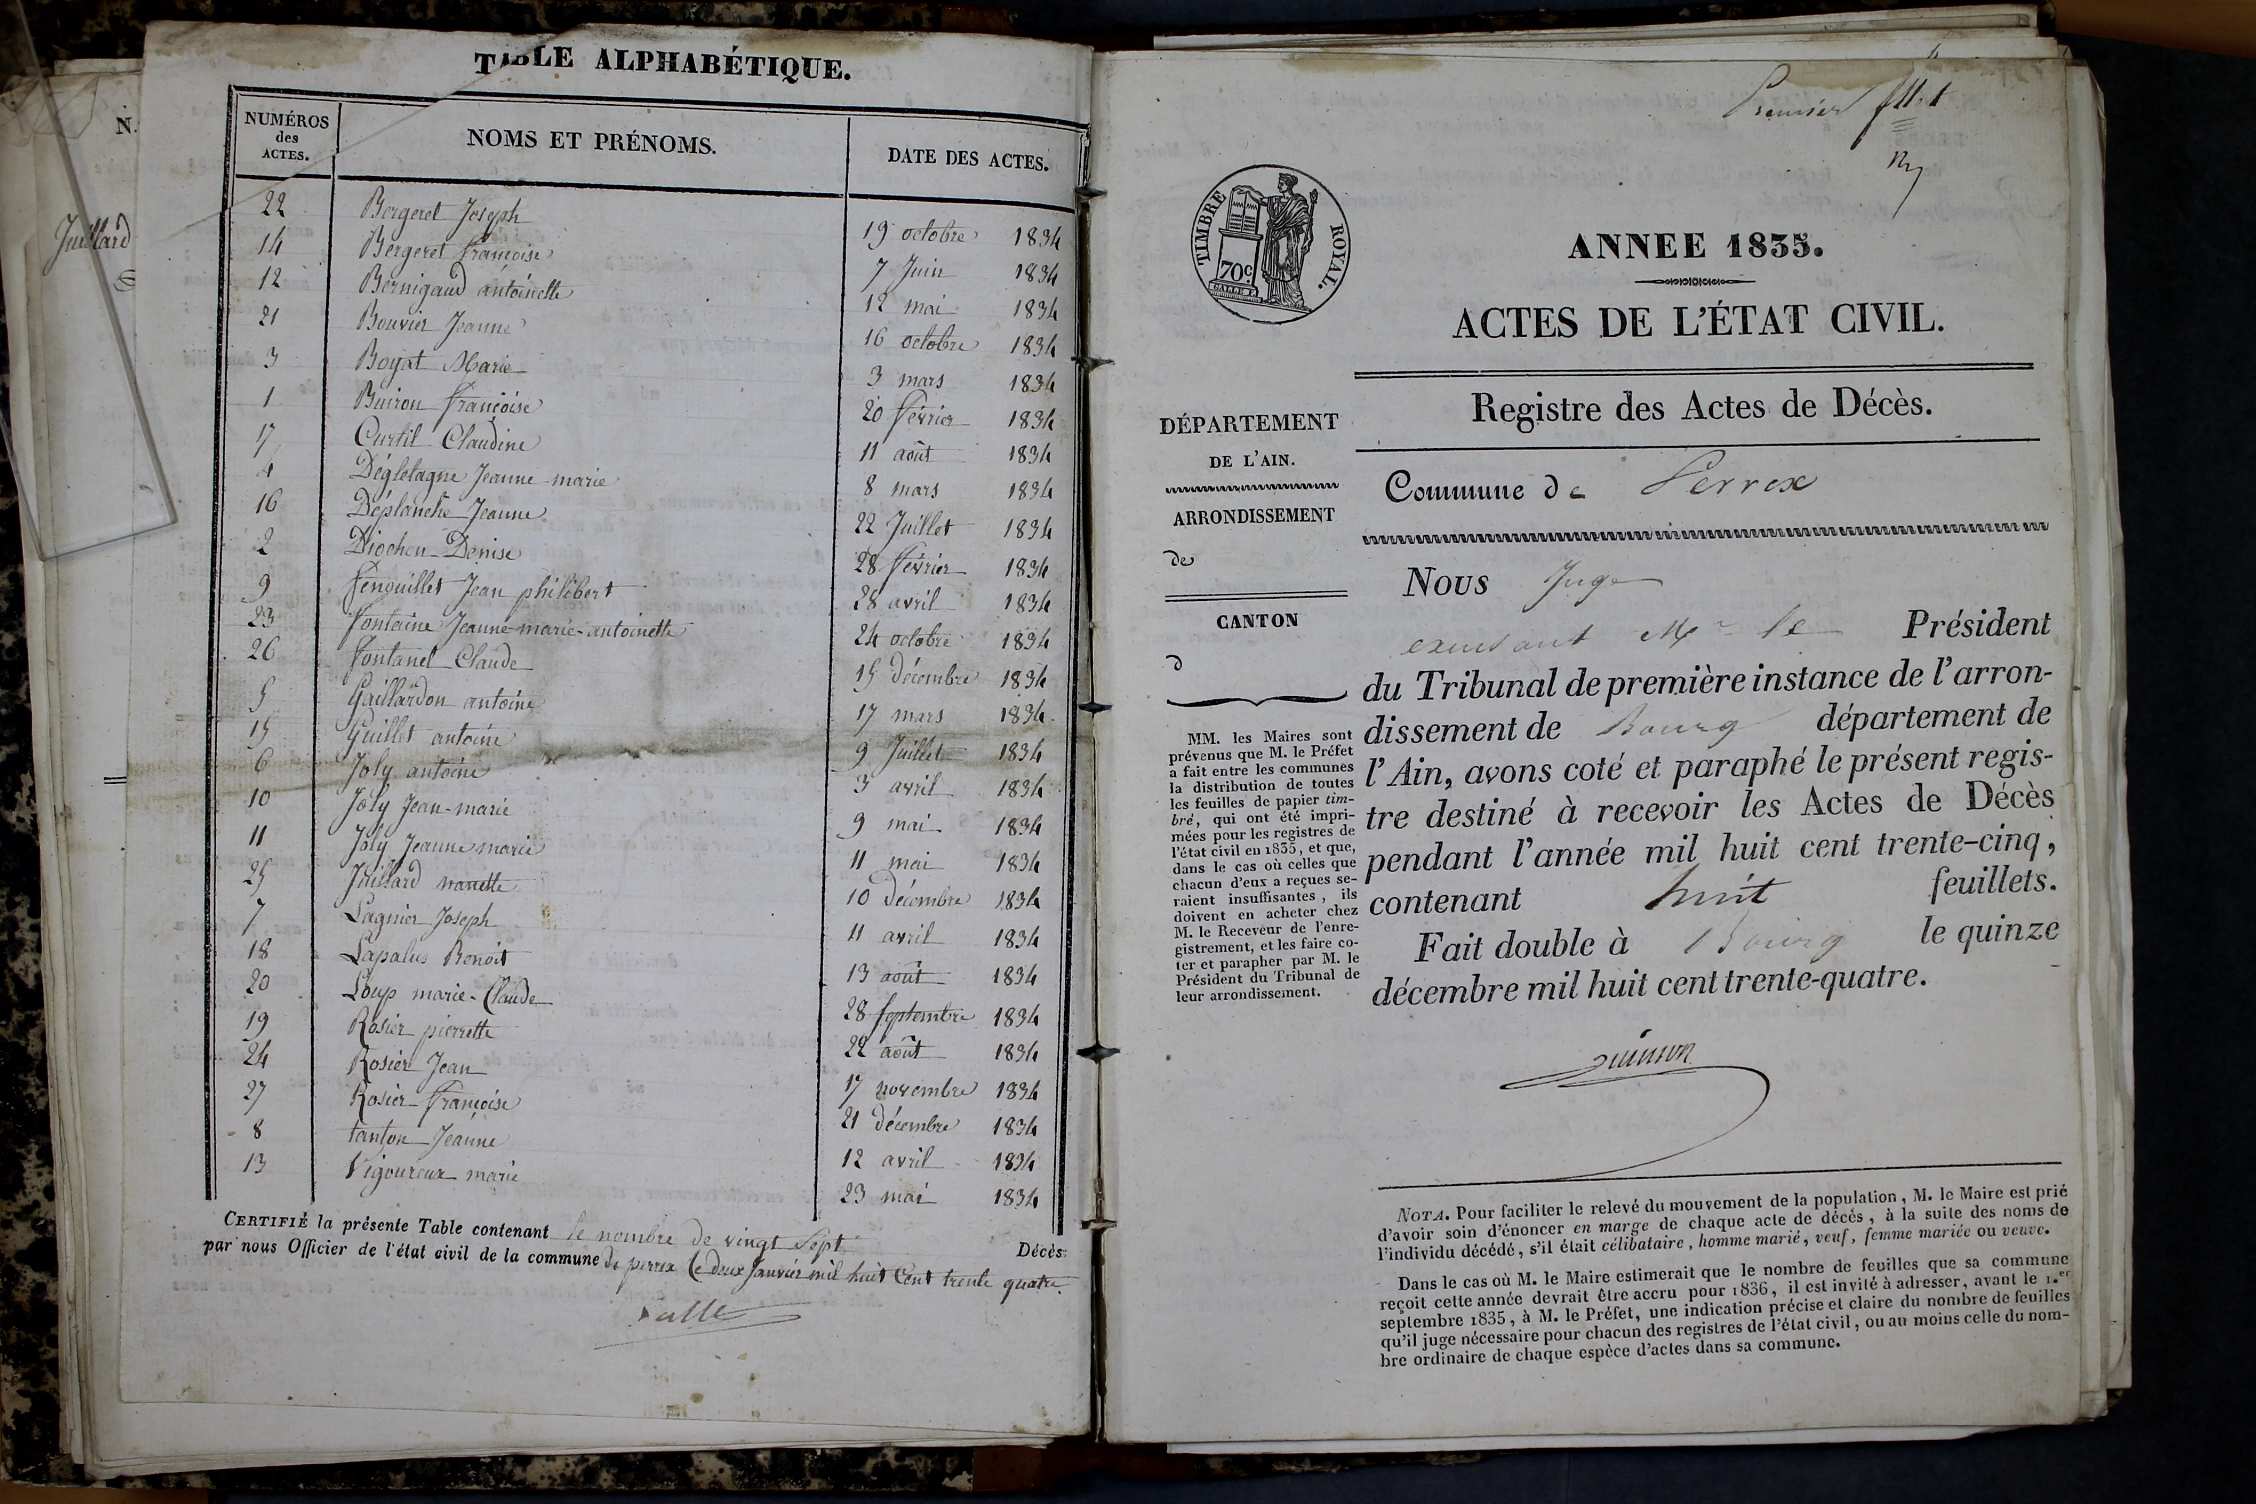 N.
Juillard
TABLE ALPHABÉTIQUE.
NUMÉROS des ACTES. NOMS ET PRÉNOMS. DATE DES ACTES.
22 Bergeret Joseph 19 octobre 1834
14 Bergeret françoise 7 Juin 1834
12 Bernigaud antoinette 12 mai 1834
21 Bouvier Jeanne 16 octobre 1834
3 Boyat Marie 3 mars 1834
1 Buiron françoise 20 février 1834
17 Curtil Claudine 11 août 1834
4 Dégletagne Jeanne-marie 8 mars 1834
16 Déplanche Jeanne 22 Juillet 1834
2 Diochon Denise 28 février 1834
9 fenouillet Jean philibert 28 avril 1834
23 fontaine Jeanne-marie-antoinette 24 octobre 1834
26 fontanel Claude 15 décembre 1834
5 Gaillardon antoine 17 mars 1834
15 Guillet antoine 9 Juillet 1834
6 Joly antoine 3 avril 1834
10 Joly Jean-marie 9 mai 1834
11 Joly Jeanne marie 11 mai 1834
25 Juillard nanette 10 décembre 1834
7 Lagnier Joseph 11 avril 1834
18 Lapalus Benoit 13 août 1834
20 Loup marie-Claude 28 septembre 1834
19 Rosier pierrette 22 août 1834
24 Rosier Jean 17 novembre 1834
27 Rosier françoise 21 décembre 1834
8 tanton Jeanne 12 avril 1834
13 Vigoureux marie 23 mai 1834
CERTIFIÉ la présente Table contenant le nombre de vingt sept Décès:
par nous Officier de l'état civil de la commune de perrex le deux Janvier mil huit cent trente quatre.
Premier f.llet
TIMBRE ROYAL.
70c.
ANNEE 1835.
ACTES DE L'ÉTAT CIVIL.
Registre des Actes de Décès.
DÉPARTEMENT
DE L'AIN.
ARRONDISSEMENT
de
CANTON
d
MM. les Maires sont
prévenus que M. le Préfet
a fait entre les communes
la distribution de toutes
les feuilles de papier tim-
bré, qui ont été impri-
mées pour les registres de
l'état civil en 1835, et que,
dans le cas où celles que
chacun d'eux a reçues se-
raient insuffisantes, ils
doivent en acheter chez
M. le Receveur de l'enre-
gistrement, et les faire co-
ter et parapher par M. le
Président du Tribunal de
leur arrondissement.
Commune de Perrex
Nous Juge
exerçant Mr le Président
du Tribunal de première instance de l'arron-
dissement de Bourg département de
l'Ain, avons coté et paraphé le présent regis-
tre destiné à recevoir les Actes de Décès
pendant l'année mil huit cent trente-cinq,
contenant huit feuillets.
Fait double à Bourg le quinze
décembre mil huit cent trente-quatre.
NOTA. Pour faciliter le relevé du mouvement de la population, M. le Maire est prié
d'avoir soin d'énoncer en marge de chaque acte de décès, à la suite des noms de
l'individu décédé, s'il était célibataire, homme marié, veuf, femme mariée ou veuve.
Dans le cas où M. le Maire estimerait que le nombre de feuilles que sa commune
reçoit cette année devrait être accru pour 1836, il est invité à adresser, avant le 1.er
septembre 1835, à M. le Préfet, une indication précise et claire du nombre de feuilles
qu'il juge nécessaire pour chacun des registres de l'état civil, ou au moins celle du nom-
bre ordinaire de chaque espèce d'actes dans sa commune.